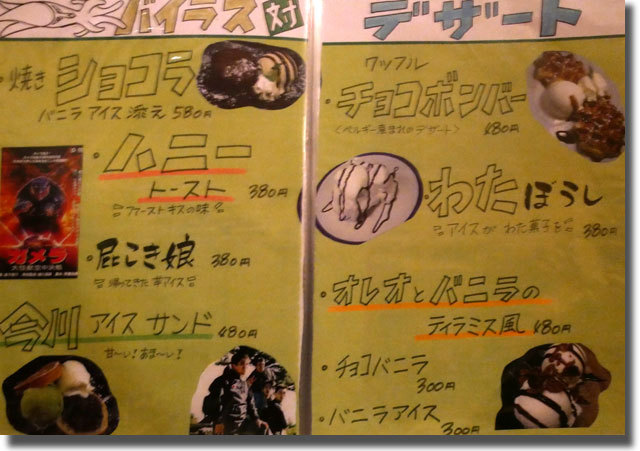 バイラス 対
・焼き ショコラ
バニラ アイス 添え 580円
・ハニー
トースト 380円
ファーストキスの味
ガメラ
・屁こき娘 380円
帰ってきた 芋アイス
今川 アイス サンド 480円
甘〜い! あま〜い!
デザート
ワッフル
・チョコボンバー
<ベルギー産まれのデザート> 480円
・わたぼうし
アイスが わた菓子を 380円
・オレオとバニラの
ティラミス風 480円
・チョコバニラ
300円
・バニラアイス
300円